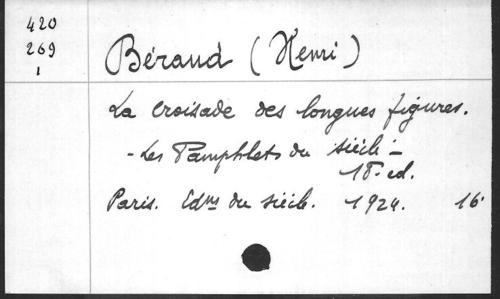 420
269
1
Béraud (Henri)
La Croisade des longues figures.
- Les Pamphlets du siècle -
18e ed.
Paris. Edns du siècle. 1924. 16°